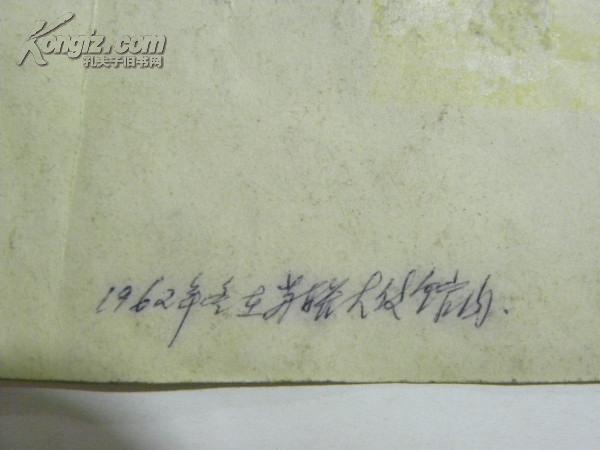 Kongfz.com
孔夫子旧书网
1962年冬在苏联大使馆内.